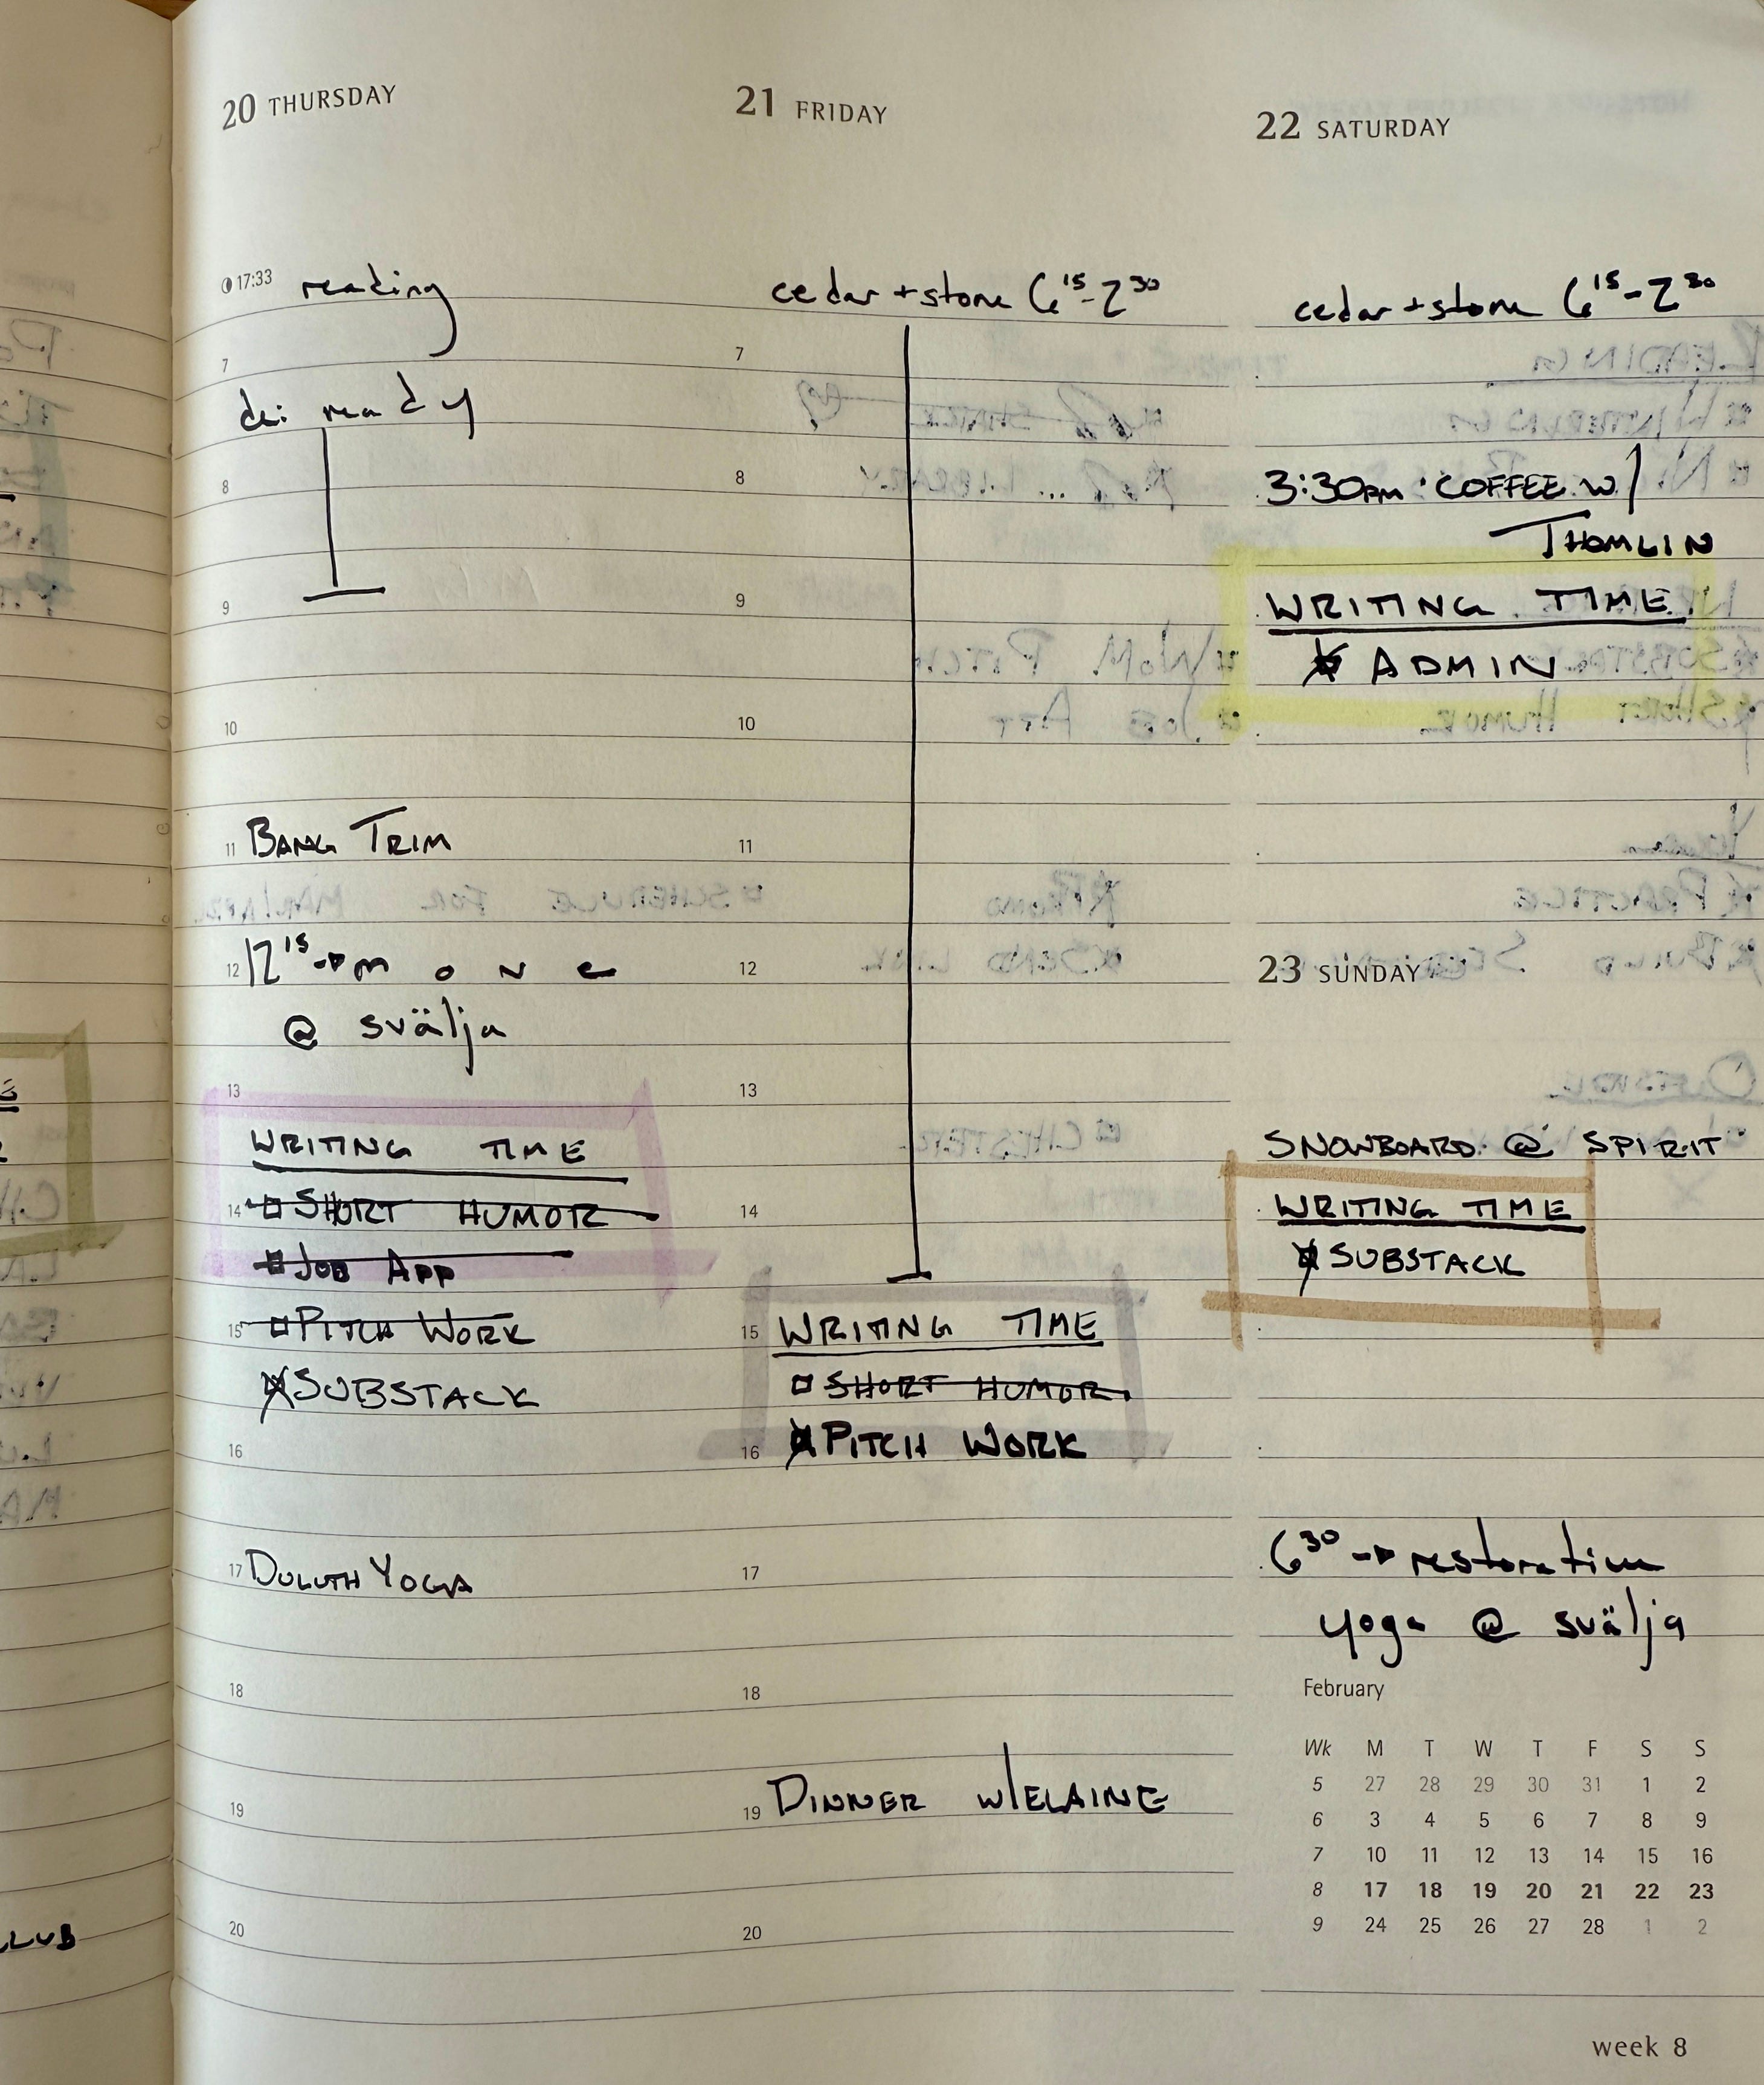 20 THURSDAY
17:33 reading
7
de: ready
8
9
10
11 BANG TRIM
12 12¹⁵→ m o n e
@ svälja
13
WRITING TIME
14 SHORT HUMOR
JOB APP
15 PITCH WORK
SUBSTACK
16
17 DULUTH YOGA
18
19
20
21 FRIDAY
cedar + stone 6¹⁵-2³⁰
7
8
9
10
11
12
13
14
15 WRITING TIME
SHORT HUMOR
16 PITCH WORK
17
18
19 DINNER W/ELAINE
20
22 SATURDAY
cedar + stone 6¹⁵-2³⁰
3:30PM COFFEE W/
THOMLIN
WRITING TIME
ADMIN
23 SUNDAY
SNOWBOARD @ SPIRIT
WRITING TIME
SUBSTACK
6³⁰→ restorative
yoga @ svälja
February
Wk M T W T F S S
5 27 28 29 30 31 1 2
6 3 4 5 6 7 8 9
7 10 11 12 13 14 15 16
8 17 18 19 20 21 22 23
9 24 25 26 27 28 1 2
week 8